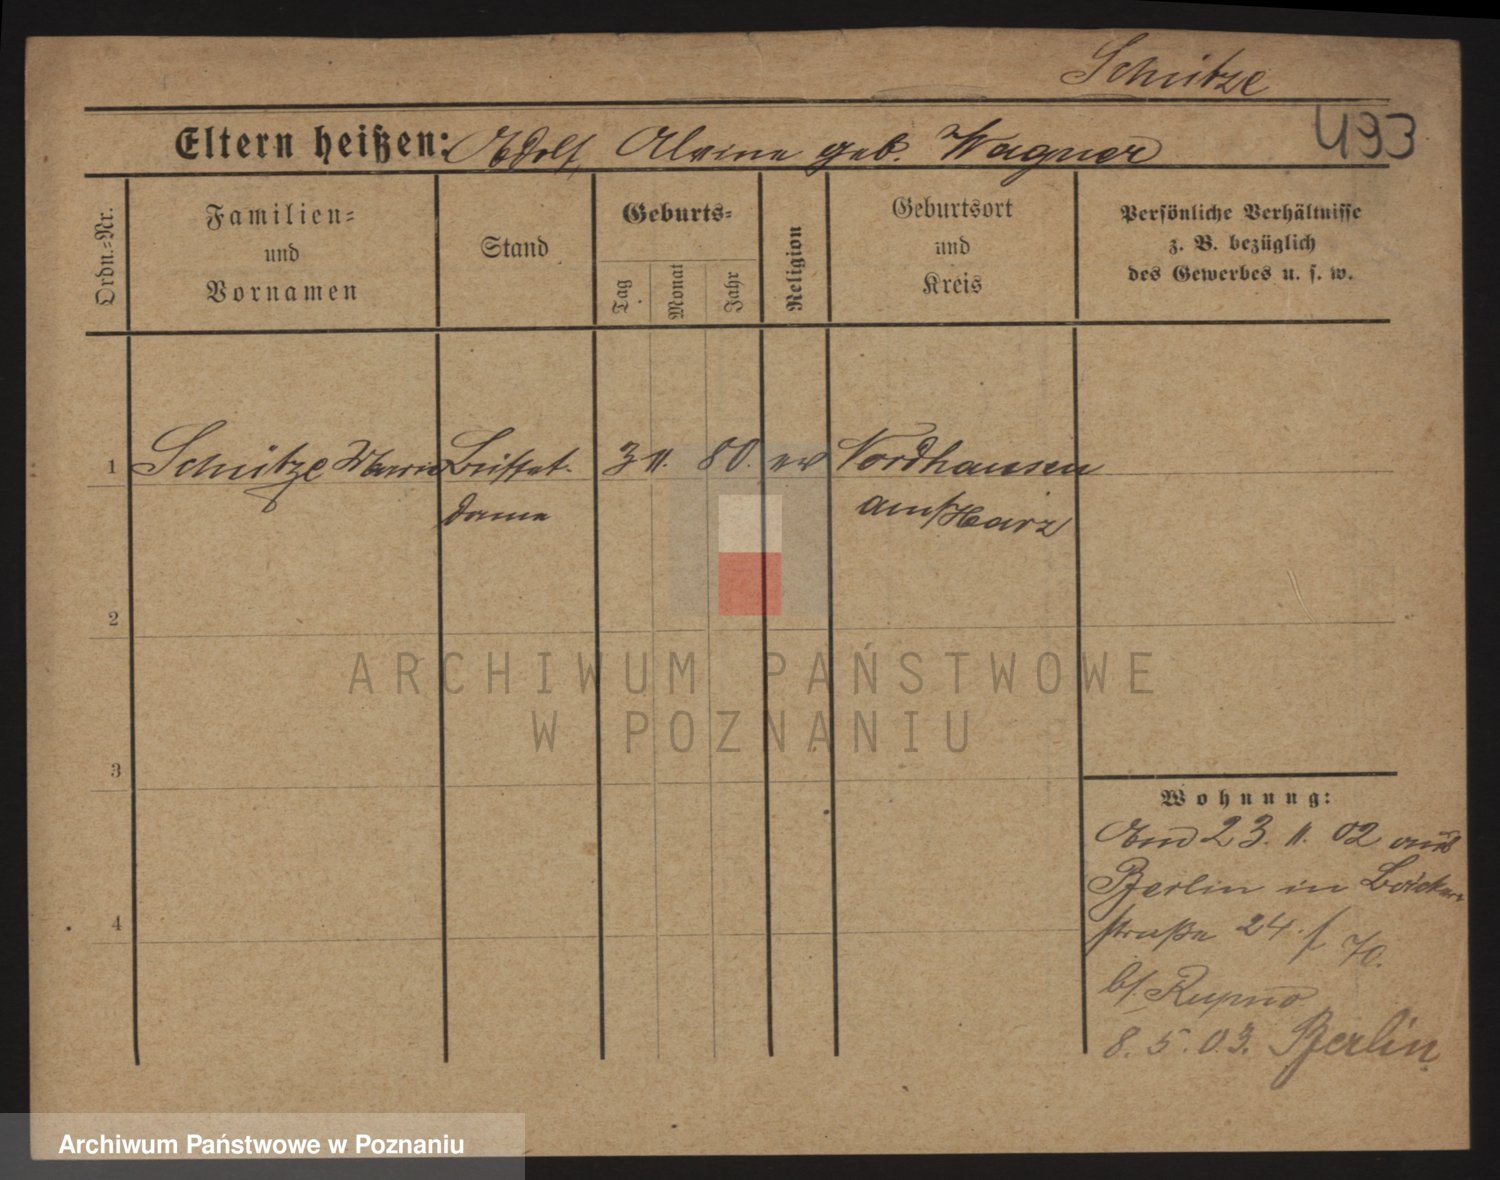 Schütze
493
Eltern heißen: Adolf, Alvine geb. Wagner
Ordn.=Nr.
Familien=
und
Vornamen
Stand
Geburts=
Tag
Monat
Jahr
Religion
Geburtsort
und
Kreis
Persönliche Verhältnisse
z. B. bezüglich
des Gewerbes u. s. w.
1 Schütze Marie Buffet- 3 11. 80. ev Nordhausen
dame am/Harz
2
3
4
Wohnung:
Am 23. 11. 02 aus
Berlin in Bäcker
straße 24. f. H.
b/.
8. 5. 03. Berlin
ARCHIWUM PAŃSTWOWE
W POZNANIU
Archiwum Państwowe w Poznaniu